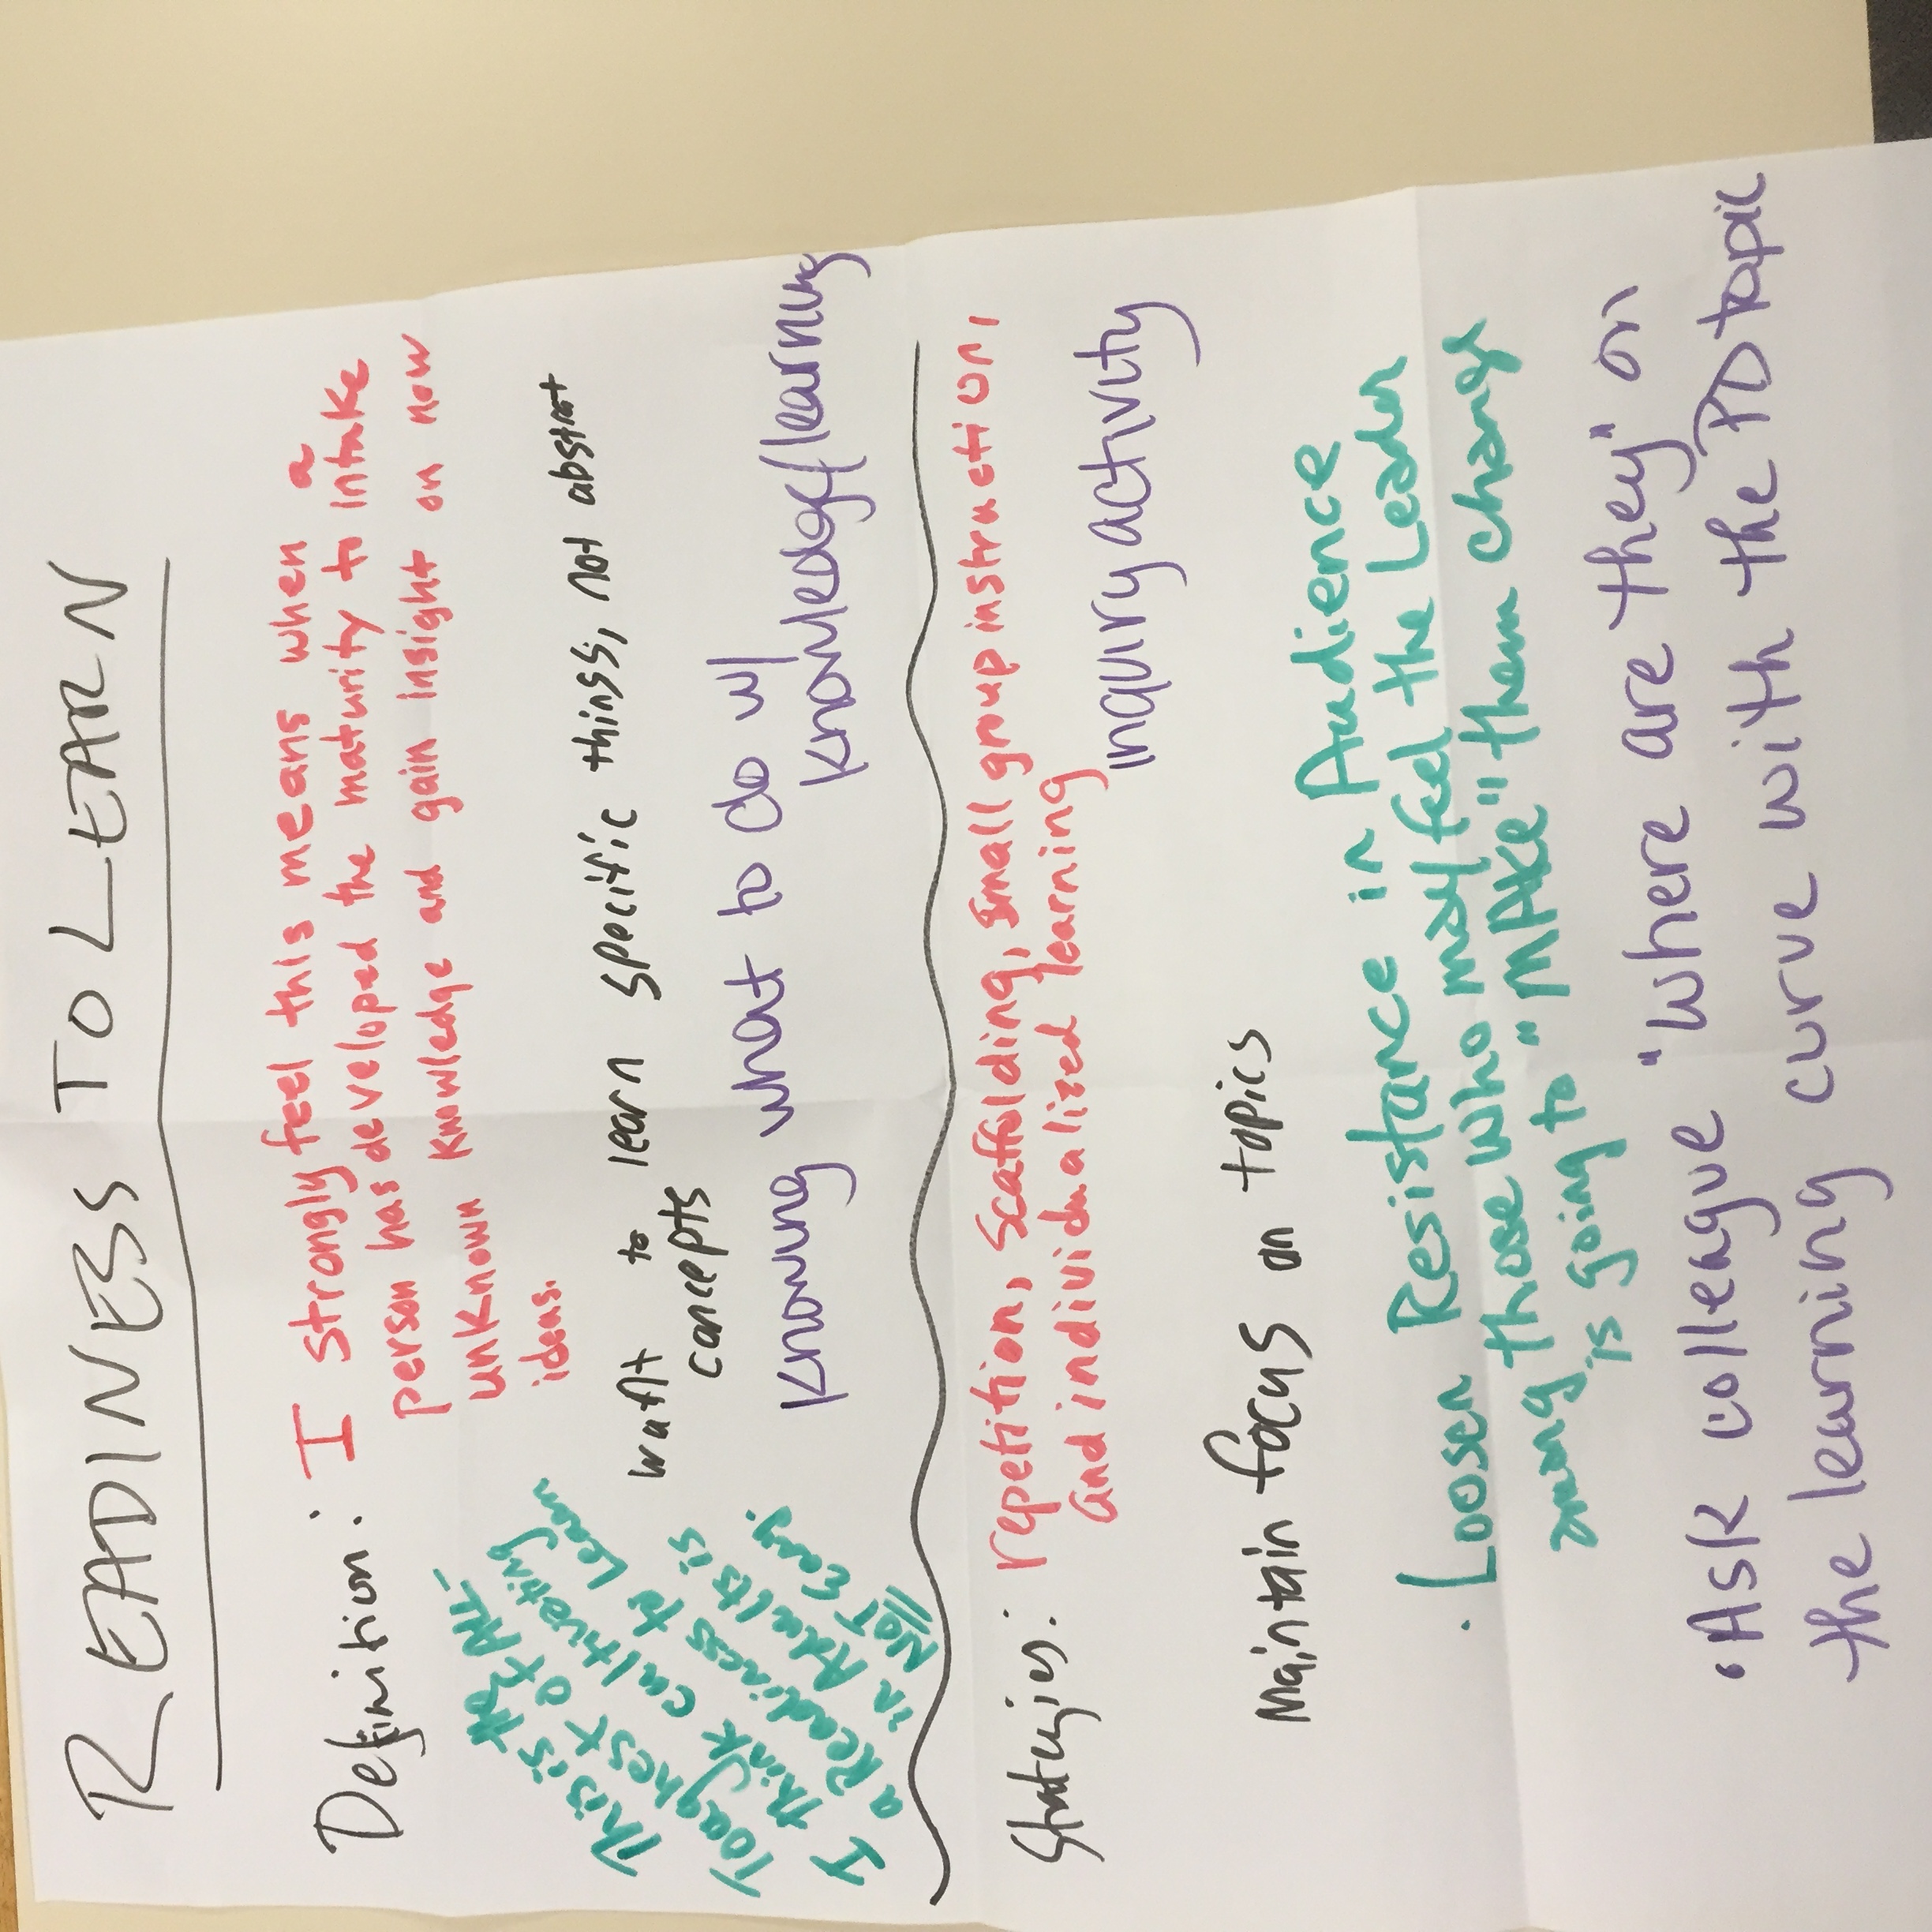 READINESS TO LEARN
Definition: I strongly feel this means when a
person has developed the maturity to intake
unknown knowledge and gain insight on new
ideas.
want to learn specific things, not abstract
concepts
Knowing what to do w/
knowledge/learning
This is the
Toughest of ALL-
I think cultivating
a Readiness to Learn
in Adults is
NOT Easy.
Strategies: repetition, scaffolding, small group instruction,
and individualized learning
inquiry activity
Maintain focus on topics
• Loosen Resistance in Audience
among those who may feel the Leader
is going to "MAKE" them change
• Ask colleague "where are they" on
the learning curve with the PD topic